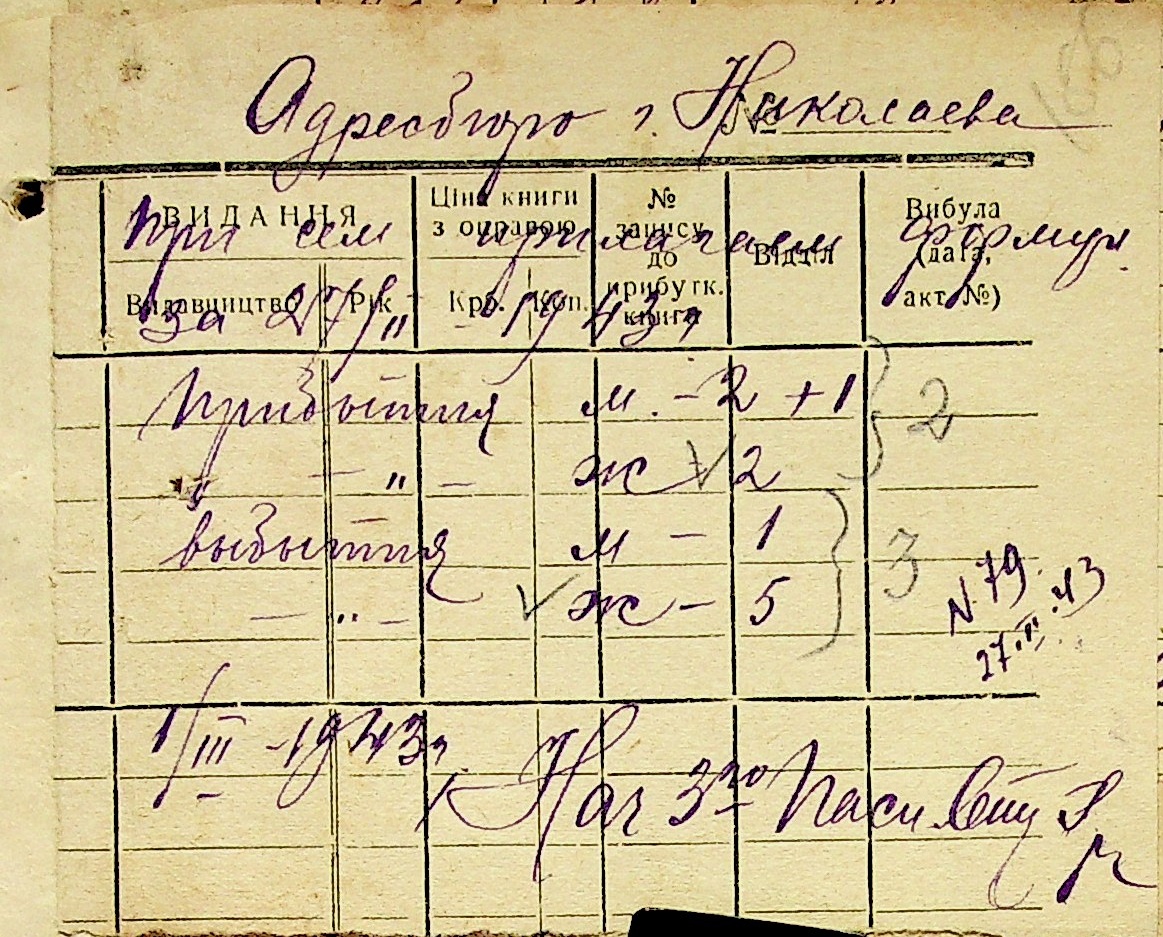 Адресбюро г. Николаева
№
ВИДАННЯ
Ціна книги з оправою
№ запису до прибутк. книги
Відділ
Вибула (дата, акт. №)
Видавництво
Рік
Крб.
Коп.
При сем прилагаем формул.
за 27/II - 1943 г.
Прибытия м. - 2 + 1 } 2
- " - ж 2
выбытия м - 1 } 3
- " - ж - 5
N 79
27.II.43
1/III - 1943 г.
Нач 3го Пасп.